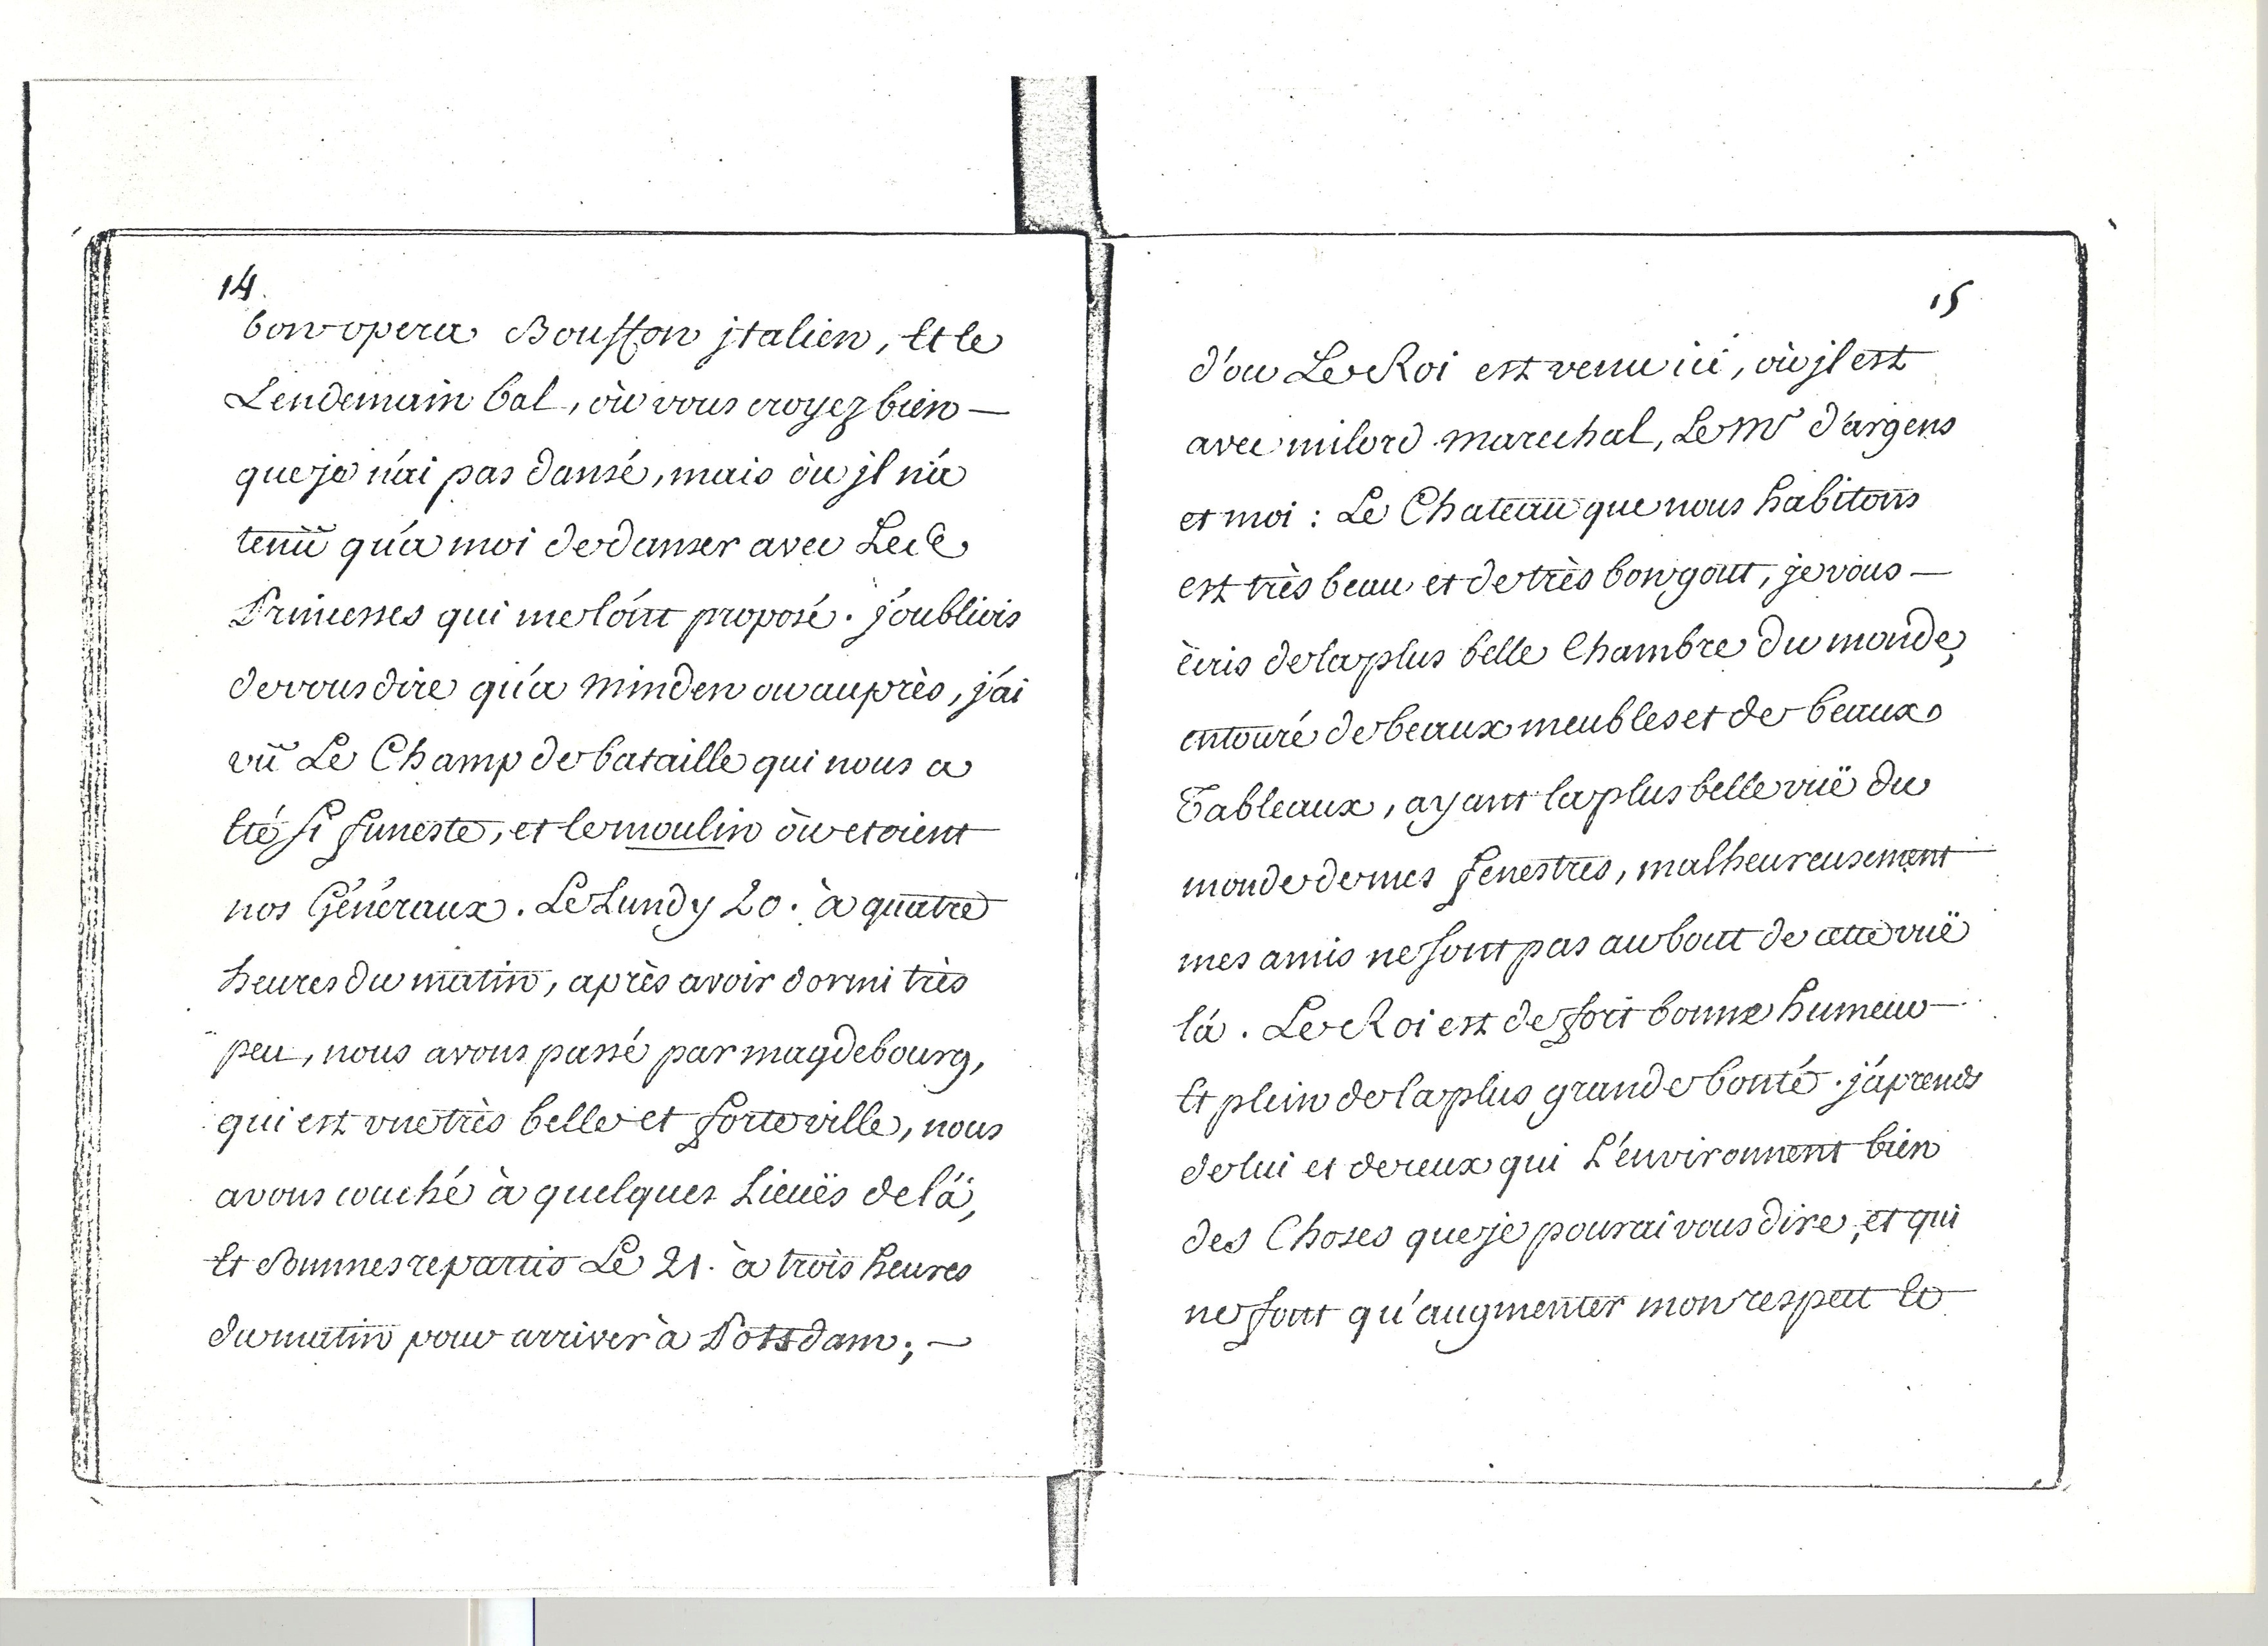 14.
bon opera Bouffon jtalien, Et le
Lendemain bal, où vous croyez bien —
que je n'ai pas dansé, mais où jl n'a
tenû qu'a moi de danser avec Les
Princesses qui me l'ont proposé. j'oubliois
de vous dire qu'a Minden ou auprès, j'ai
vû Le Champ de bataille qui nous a
Eté si funeste, et le moulin où etoient
nos Généraux. Le Lundy 20. à quatre
heures du matin, après avoir dormi très
peu, nous avons passé par magdebourg,
qui est vne très belle et forte ville, nous
avons couché à quelques Lieuës de là,
Et Sommes repartis Le 21. à trois heures
du matin pour arriver à Potsdam; —
15
d'ou Le Roi est venu ici, où jl est
avec milord marechal, Le Mis d'argens
et moi : Le Chateau que nous habitons
est très beau et de très bon gout, je vous —
ècris de la plus belle Chambre du monde,
entouré de beaux meubles et de beaux
Tableaux, ayant la plus belle vuë du
monde de mes fenestres, malheureusement
mes amis ne sont pas au bout de cette vuë
là. Le Roi est de fort bonne humeur —
Et plein de la plus grande bonté. j'aprends
de lui et de ceux qui L'environnent bien
des Choses que je pourai vous dire, et qui
ne font qu'augmenter mon respect Et